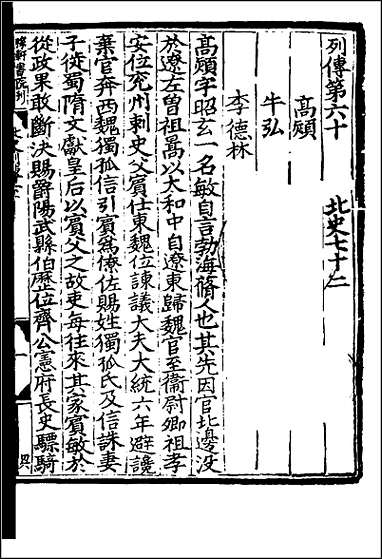 列傳第六十　北史七十二
高熲
牛弘
李德林
高熲字昭玄一名敏自言勃海蓨人也其先因官北邊没
於遼左曾祖暠以大和中自遼東歸魏官至衞尉卿祖孝
安位兖州刺史父賓仕東魏位諫議大夫大統六年避讒
棄官奔西魏獨孤信引賓爲僚佐賜姓獨孤氏及信誅妻
子徙蜀隋文獻皇后以賓父之故吏每往來其家賓敏於
從政果敢斷決賜爵陽武縣伯歷位齊公憲府長史驃騎